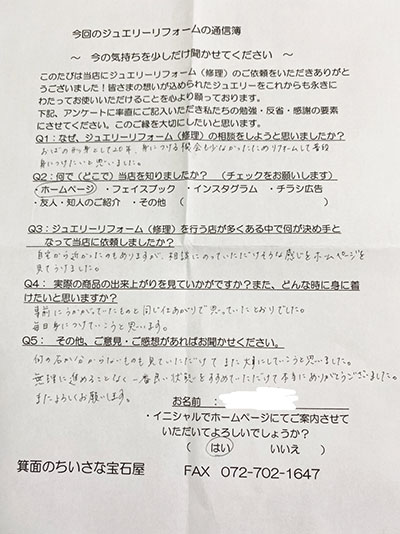 今回のジュエリーリフォームの通信簿
～ 今の気持ちを少しだけ聞かせてください ～
このたびは当店にジュエリーリフォーム（修理）のご依頼をいただきありがと
うございました！皆さまの想いが込められたジュエリーをこれからも永きに
わたってお使いいただけることを心より願っております。
下記、アンケートに率直にご記入いただき私たちの勉強・反省・感謝の要素
にさせてください。このご縁を大切にしたいと思います。
Q1：なぜ、ジュエリーリフォーム（修理）の相談をしようと思いましたか？
として20年、身につける機会も少なかったためリフォームして普段
身につけたいと思いました。
Q2：何で（どこで）当店を知りましたか？ （チェックをお願いします）
・ホームページ ・フェイスブック ・インスタグラム ・チラシ広告
・友人・知人のご紹介 ・その他（ ）
Q3：ジュエリーリフォーム（修理）を行う店が多くある中で何が決め手と
なって当店に依頼しましたか？
自宅から近かったのもありますが、相談にのっていただけそうな感じをホームページを
見てうけました。
Q4： 実際の商品の出来上がりを見ていかがですか？また、どんな時に身に着
けたいと思いますか？
事前にうかがっていたものと同じ仕あがりで思っていたとおりでした。
毎日身につけていこうと思います。
Q5： その他、ご意見・ご感想があればお聞かせください。
何の石か分からないものも見ていただけてまた大事にしていこうと思いました。
無理に進めることなく一番良い状態をすすめていただけて本当にありがとうございました。
またよろしくお願いします。
お名前：
・イニシャルでホームページにてご案内させて
いただいてよろしいでしょうか？
（ はい いいえ ）
箕面のちいさな宝石屋 FAX 072-702-1647